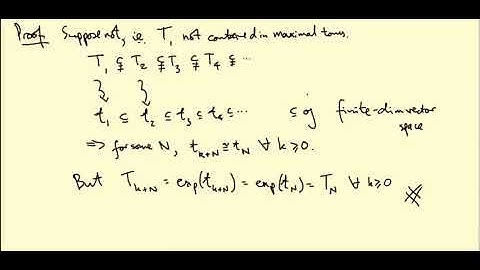 Proof. Suppose not, i.e. T₁ not contained in maximal torus.
T₁ ⊊ T₂ ⊊ T₃ ⊊ T₄ ⊊ ⋯
t₁ ⊆ t₂ ⊆ t₃ ⊆ t₄ ⊆ ⋯ ⊆ g finite-dim vector space
⇒ for some N, t_{k+N} ≅ t_N ∀ k ≥ 0.
But T_{k+N} = exp(t_{k+N}) = exp(t_N) = T_N ∀ k ≥ 0